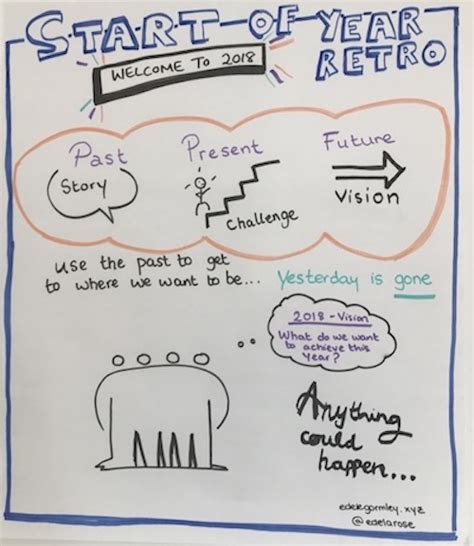 START-OF YEAR
RETRO
WELCOME TO 2018
Past
Present
Future
Story
Challenge
Vision
use the past to get
to where we want to be...
Yesterday is gone
2018 - Vision
What do we want
to achieve this
year?
Anything
could
happen...
@edelarose